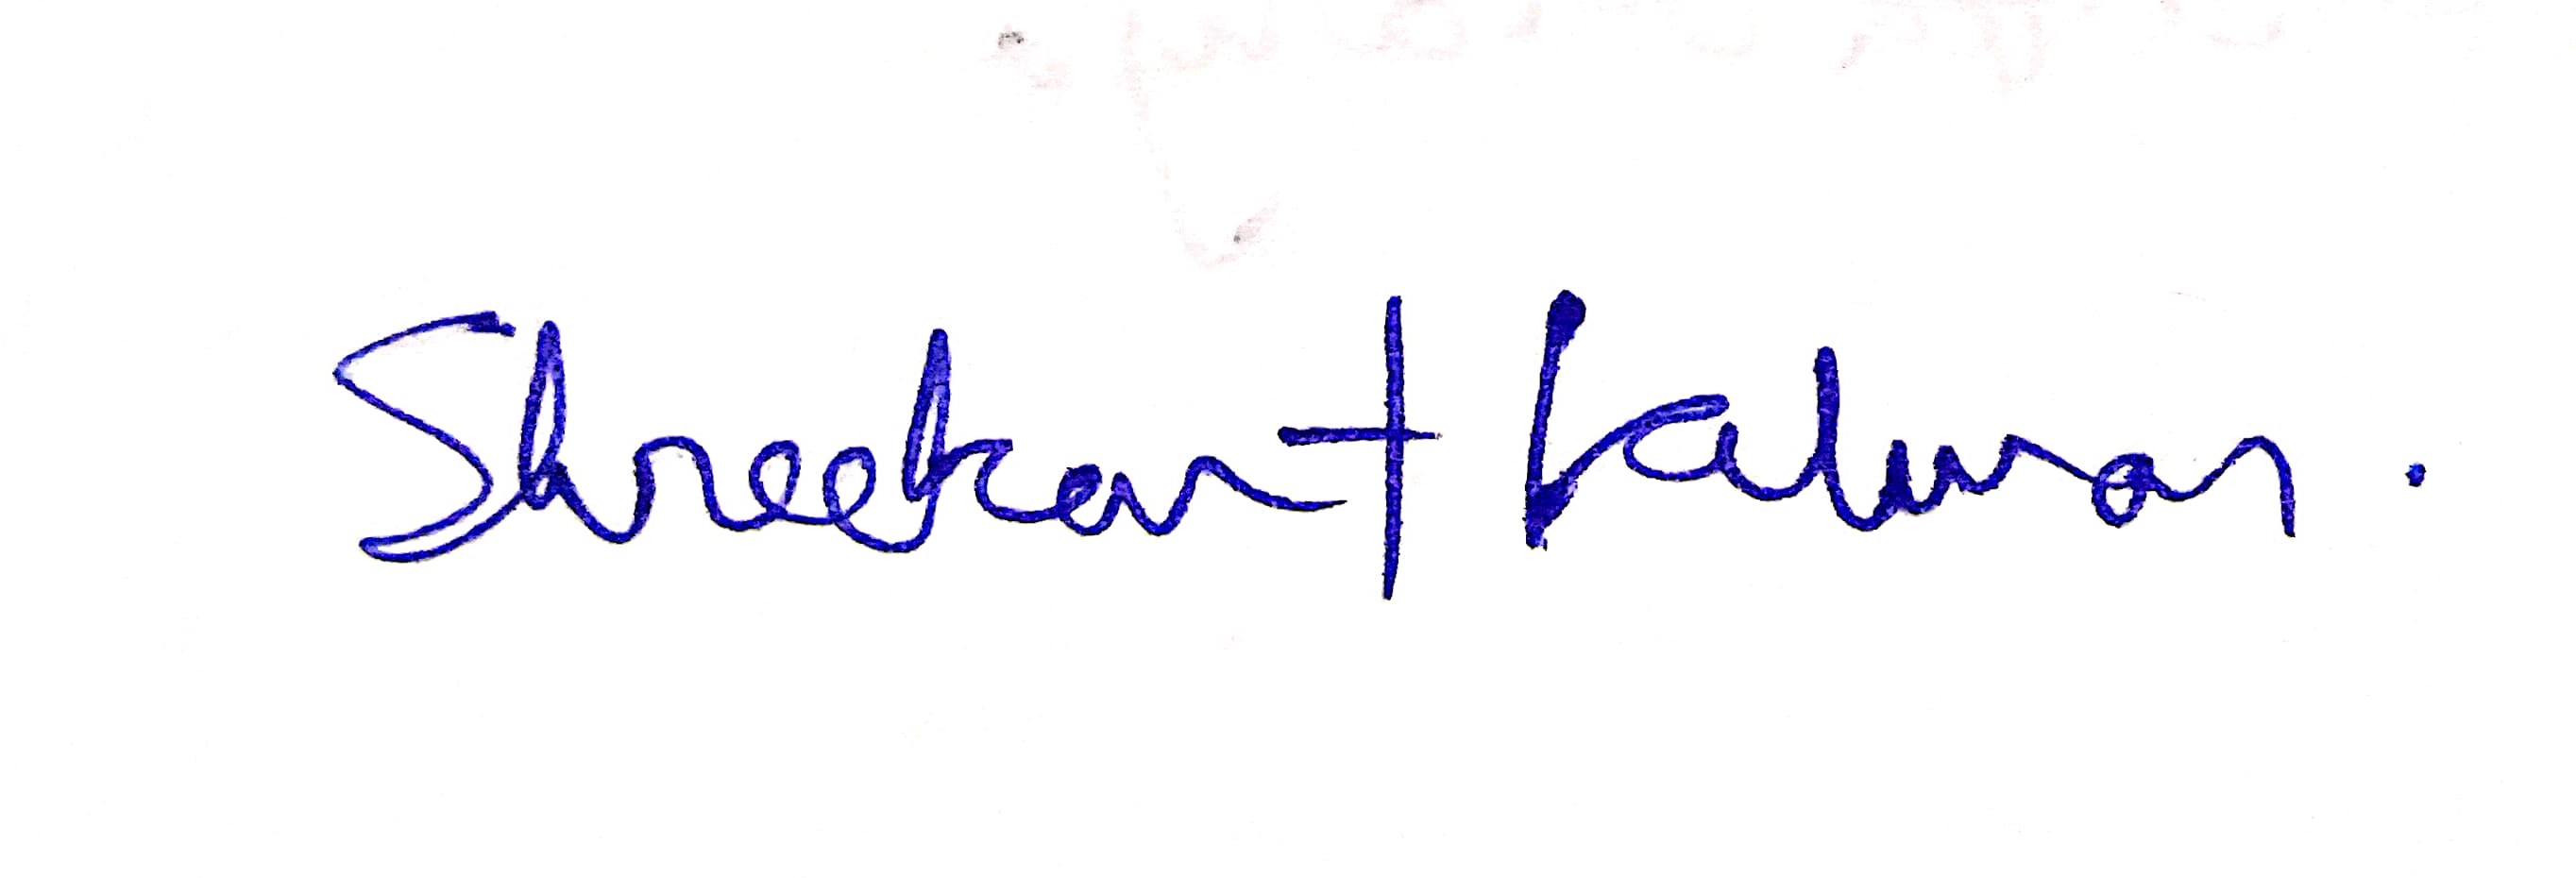 Shreekant Kalwar.